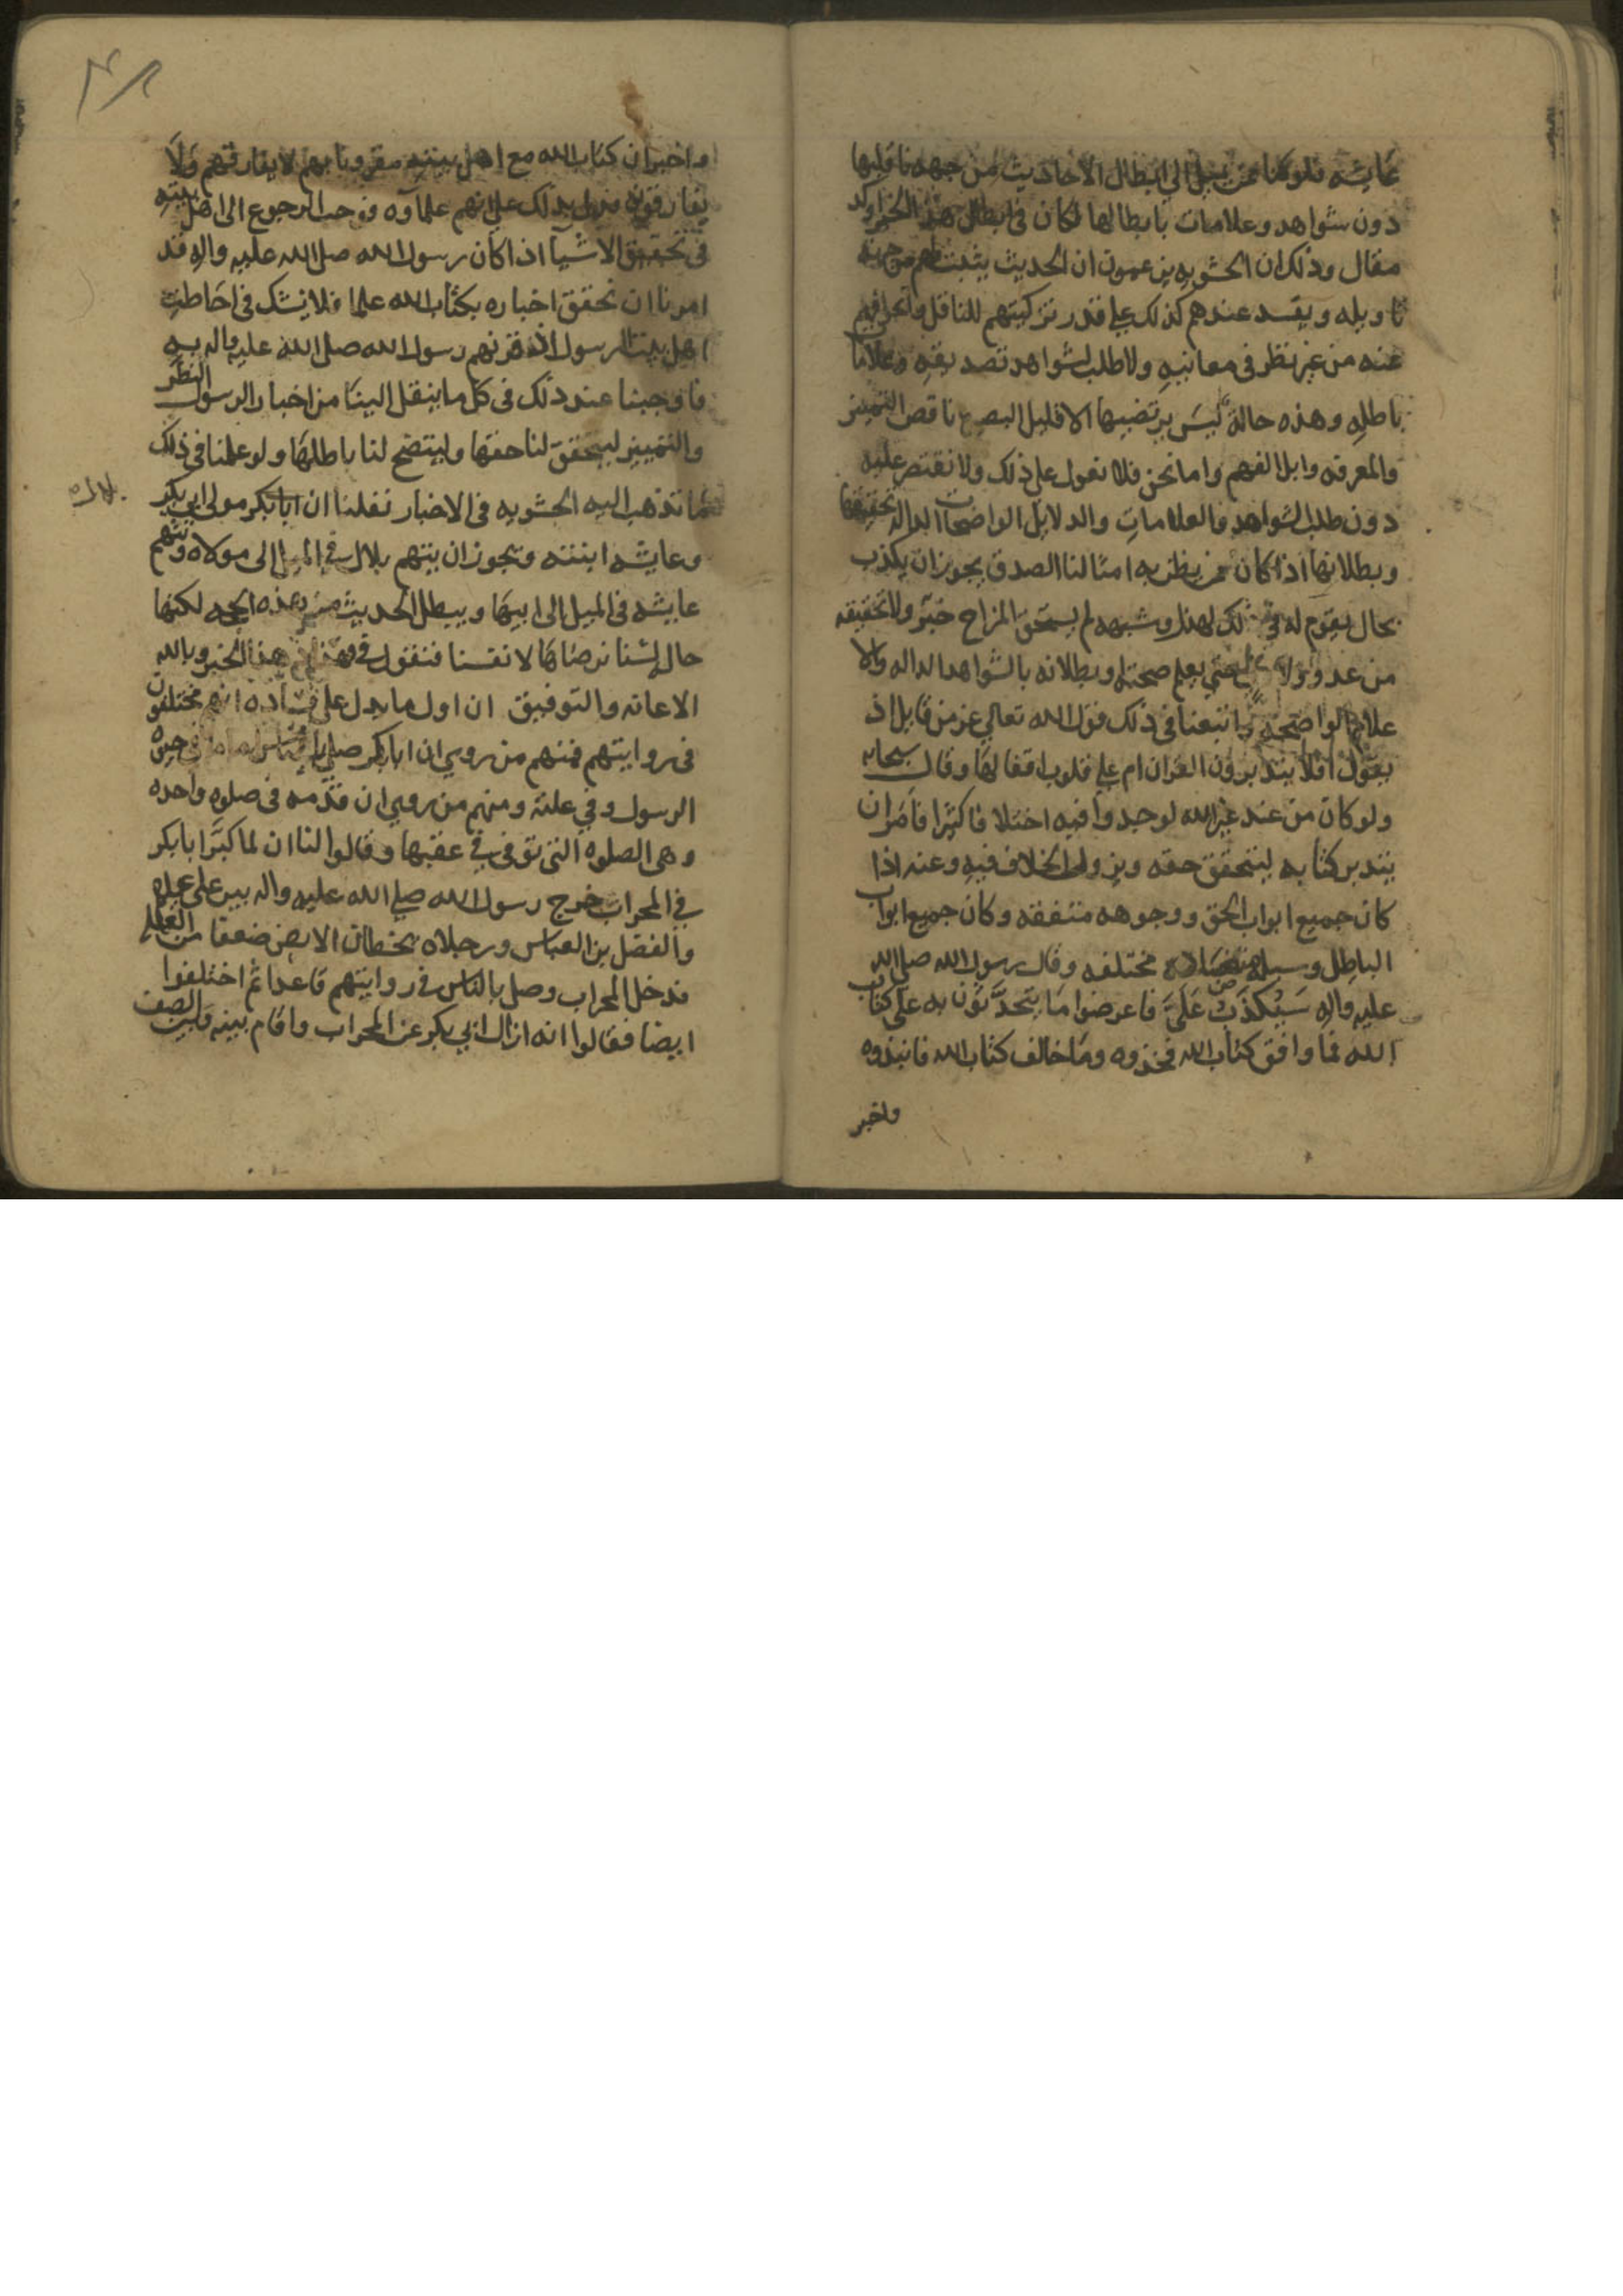 عايشه فلو كنا ممن يميل الي ابطال الاحاديث من جهه ناقليها
دون شواهد وعلامات بابطالها لكان في ابطال هذا الخبر اوكد
مقال وذلك ان الحشويه يزعمون ان الحديث يثبت لهم من جهة
تاويله ويفسد عندهم كذلك علي قدر تزكيتهم للناقل وانحرافهم
عنه من غير نظر في معانيه ولا طلب لشواهد تصديقه وعلامات
باطله وهذه حالة ليس يرتضيها الا قليل البصر ناقص التمييز
والمعرفه وابل الفهم واما نحن فلا نعول علي ذلك ولا نقتصر عليه
دون طلب الشواهد والعلامات والدلايل الواضحات الداله تحقيقها
وبطلانها اذا كان ممن يظن به امثالنا الصدق يجوز ان يكذب
بحال يقوم له في ذلك لهذا وشبهه لم يستحق خبر ولا تحقيقه
من عدو ولا حتي يعلم صحته او بطلانه بالشواهد الداله والا
علامة الواضحة واتبعنا في ذلك قول الله تعالي عز من قايل اذ
يقول افلا يتدبرون القران ام علي قلوب اقفالها وقال سبحانه
ولو كان من عند غير الله لوجدوا فيه اختلافا كثيرا فامر ان
يتدبر كتابه ليتحقق حقه ويزول الخلاف فيه وعنه اذا
كان جميع ابواب الحق ووجوهه متفقه وكان جميع ابواب
الباطل وسبله متضاده مختلفه وقال رسول الله صلي الله
عليه واله سيكذب علي فاعرضوا ما يتحدثون به علي كتاب
الله فما وافق كتاب الله فخذوه وما خالف كتاب الله فانبذوه
واخبر
واخبر ان كتاب الله مع اهل بيته مقرونا بهم لا يفارقهم ولا
يفارقونه فدل بذلك علي انهم علماوه فوجب الرجوع الي اهل بيته
في تحقيق الاشيا اذا كان رسول الله صلي الله عليه واله قد
امرنا ان نحقق اخباره بكتاب الله علما فلا نشك في احاطت
اهل بيت الرسول اذ قرنهم رسول الله صلي الله عليه واله به
فاوجبنا عند ذلك في كل ما ينقل الينا من اخبار الرسول النظر
والتمييز ليتحقق لنا حقها وليتضح لنا باطلها ولو علمنا في ذلك
بما تذهب اليه الحشويه في الاخبار نقلنا ان ابا بكر مولي ابي بكر
بلال
وعايشه ابنته ويجوز ان يتهم بلال في الميل الي مولاه وتتهم
عايشه في الميل الي ابيها ويبطل الحديث من هذه الجهه لكنها
حال لسنا نرضاها لانفسنا فنقول في هذا الخبر وبالله
الاعانه والتوفيق ان اول ما يدل علي فساده انهم مختلفون
في روايتهم فمنهم من روي ان ابا بكر صلي بالناس اماما في حيوه
الرسول وفي علته ومنهم من روي ان قدمه في صلوه واحده
وهي الصلوه التي توفي في عقبها وقالوا لنا ان لما كبر ابا بكر
في المحراب خرج رسول الله صلي الله عليه واله بين علي عليلم
والفضل بن العباس ورجلاه يخطان الارض ضعفا من العلة
فدخل المحراب وصلي بالناس في روايتهم قاعدا ثم اختلفوا
ايضا فقالوا انه ازال ابي بكر عن المحراب واقام بينه وبين الصف